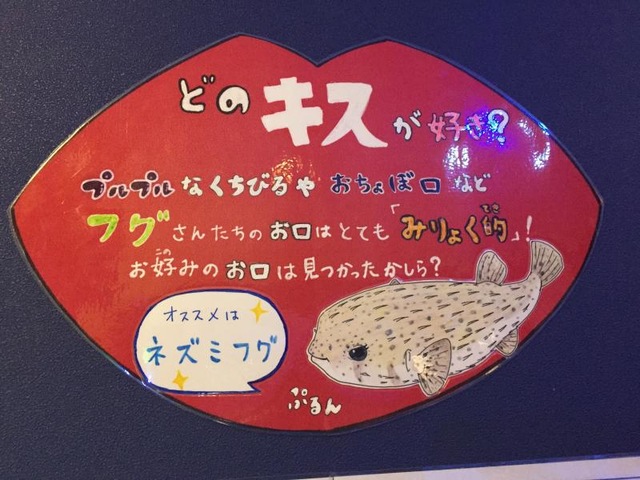 どのキスが好き?
プルプルなくちびるやおちょぼ口など
フグさんたちのお口はとても「みりょく的」!
お好みのお口は見つかったかしら?
オススメは
ネズミフグ
ぷるん